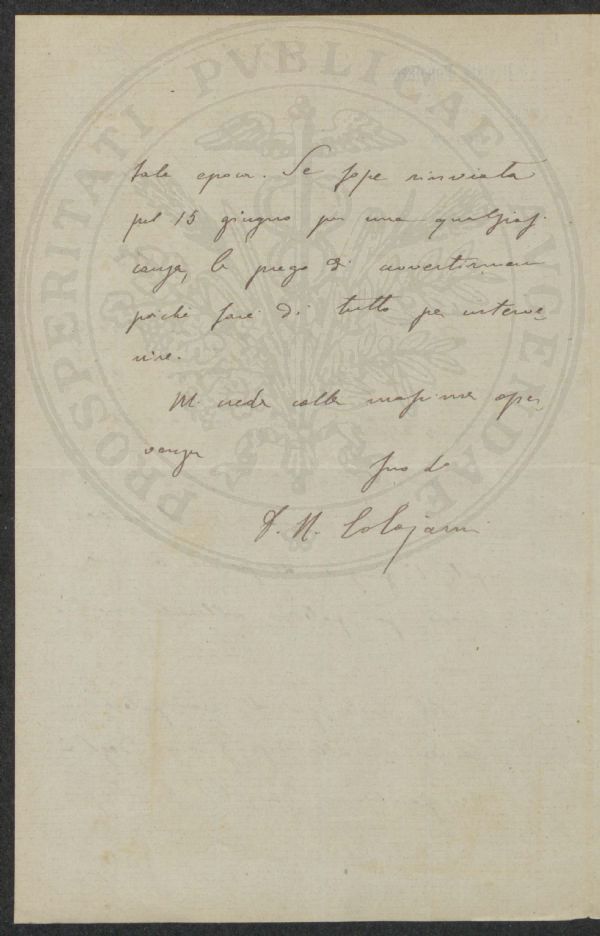 PROSPERITATI PVBLICAE AVGENDAE
tale epoca. Se fosse rinviata
pel 15 giugno per una qualsiasi
causa, la prego di avvertirmene
poiché farei di tutto per interve-
nire.
Mi creda colla massima osser-
vanza
Suo do
N. Colajanni